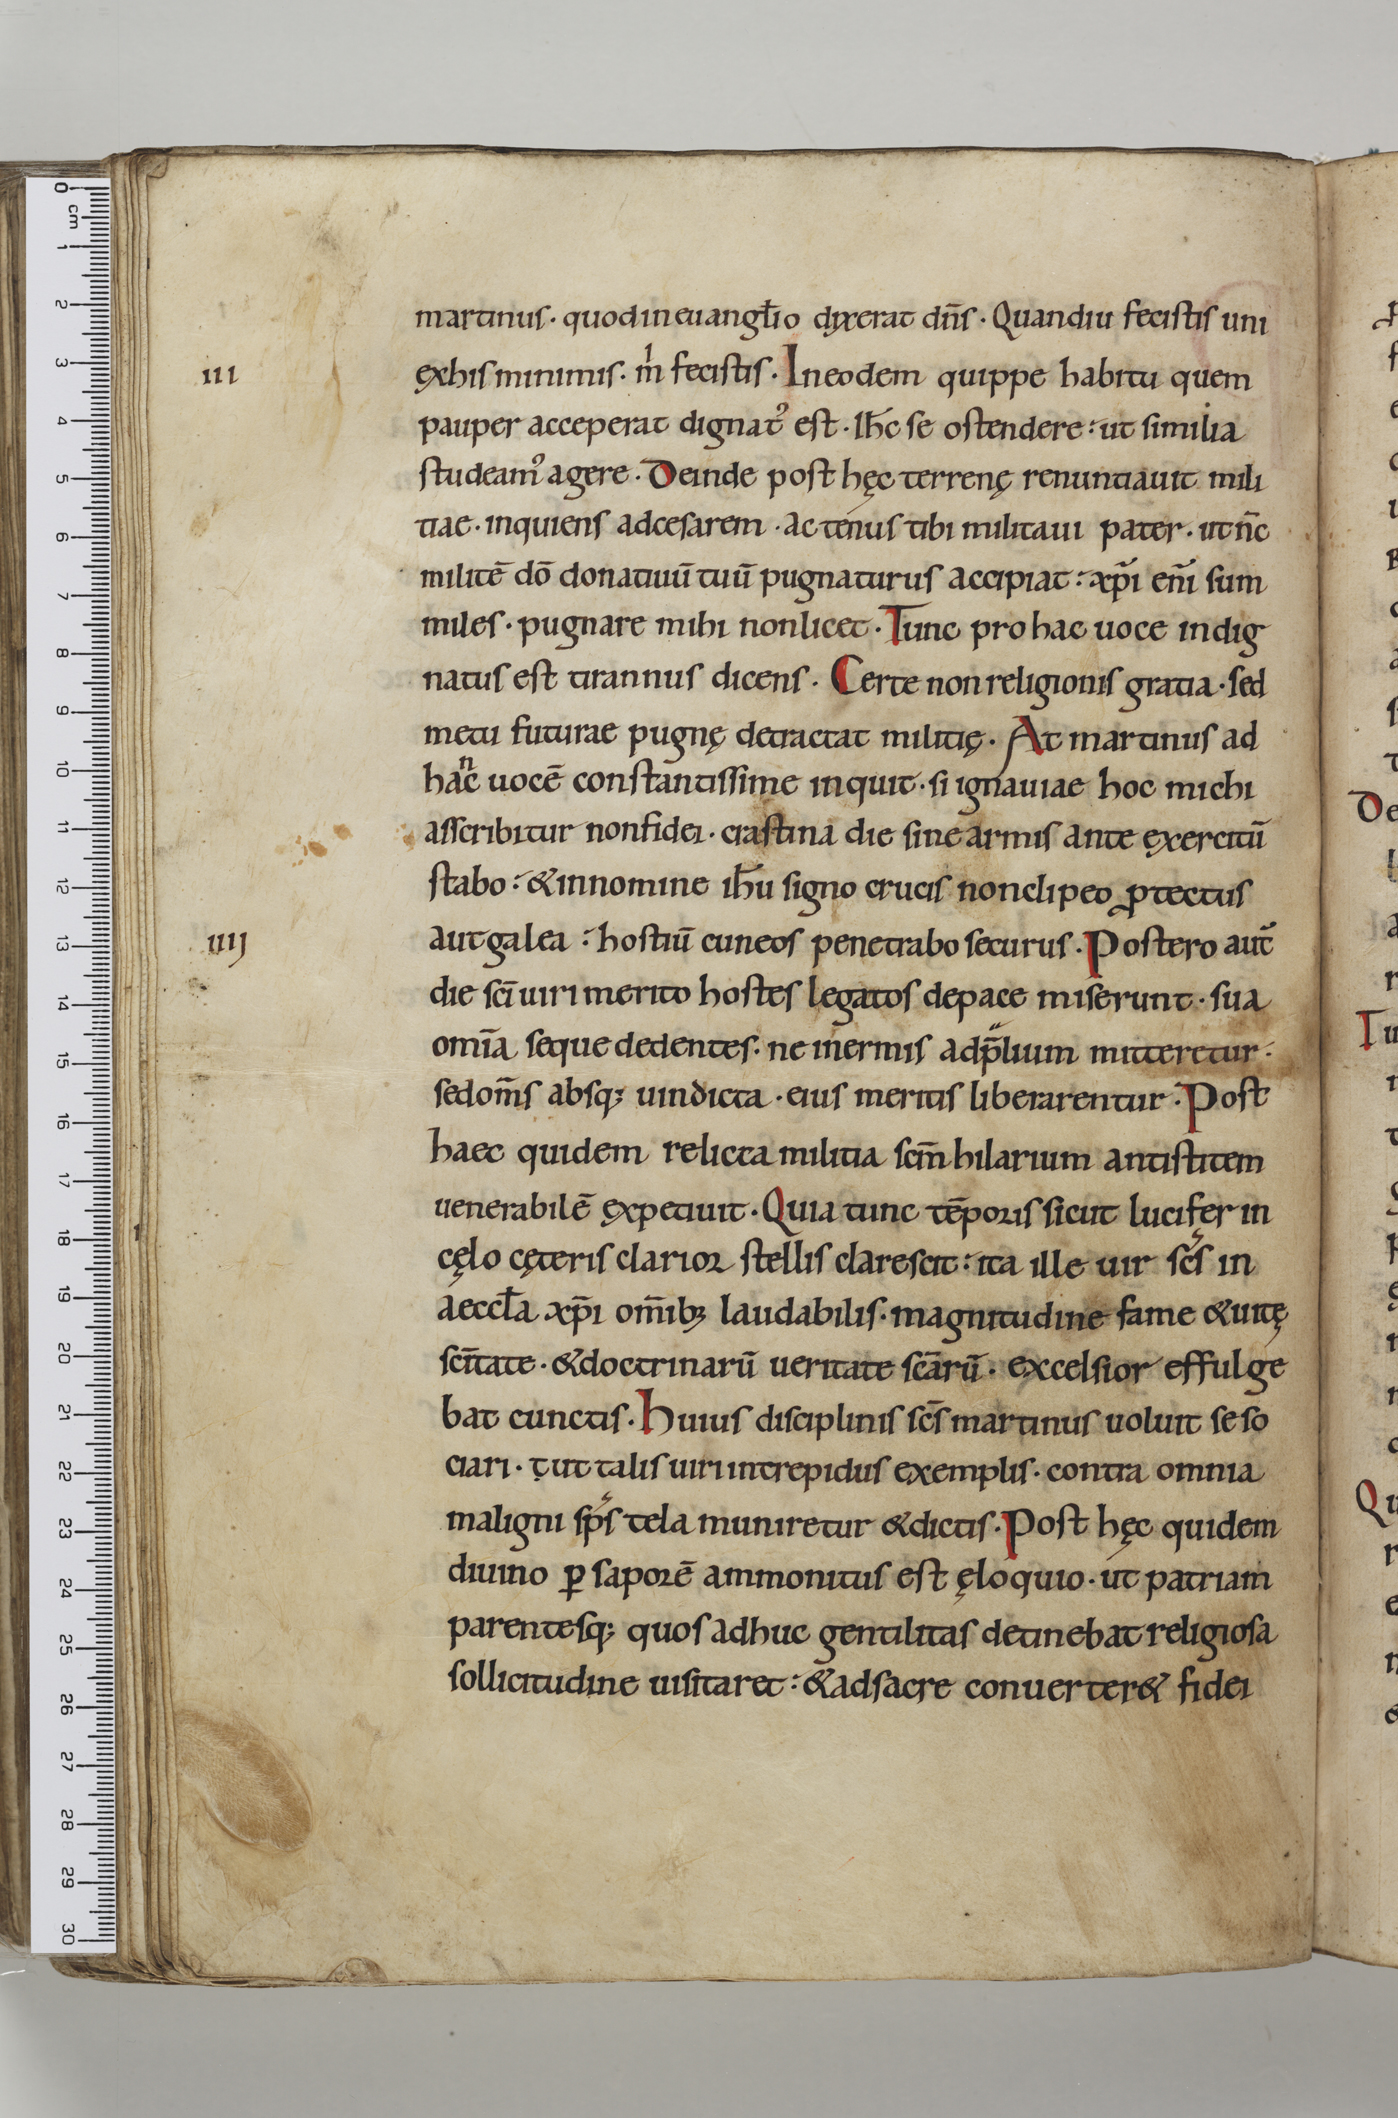 martinus · quod in euangl̄io dyxerat dn̄s · Quandiu fecistis uni
III
ęx his minimis · m̍ fecistis · In eodem quippe habitu quem
pauper acceperat dignatꝰ est · Ih̄c se ostendere : ut similia
studeamꝰ agere · Deinde post hęc terrenę renuntiauit mili
tiae · inquiens ad cesarem · actenus tibi militaui pater · ut nc̄
militē dō donatiuū tuū pugnaturus accipiat : xp̄i eni̅ sum
miles · pugnare mihi non licet · Tunc pro hac uoce indig
natus est tirannus dicens · Certe non religionis gratia · sed
metu futurae pugnę detractat militię · At martinus ad
hanc uocē constantissime inquit · si ignauiae hoc michi
asscribitur non fidei · crastina die sine armis ante ęxercitū
stabo : & in nomine ih̄u signo crucis non clipeo ꝓtectus
IIIJ
aut galea : hostiū cuneos penetrabo securus · Postero aut̄
die sc̄i uiri merito hostes legatos de pace miserunt · sua
omīa seque dedentes · ne inermis ad p̄lium mitteretur ·
sed om̄s absq; uindicta · eius meritis liberarentur · Post
haec quidem relicta militia scm̄ hilarium antistitem
uenerabilē ęxpetiuit · Quia tunc tēporis sicut lucifer in
cęlo cęteris clarior stellis clarescit : ita ille uir sc̄s in
aeccl̄a xp̄i om̄ib; laudabilis · magnitudine fame & uitę
sc̄itate · & doctrinarū ueritate sc̄arū · excelsior effulge
bat cunctis · Huius disciplinis sc̄s martinus uoluit se so
ciari · ut talis uiri intrepidus exemplis · contra omnia
maligni sp̄s tela muniretur & dictis · Post hęc quidem
diuino ꝑ saporē ammonitus est ęloquio · ut patriam
parentesq; quos adhuc gentilitas detinebat religiosa
sollicitudine uisitaret : & ad sacre conuerter& fidei
0
cm
1
2
3
4
5
6
7
8
9
10
11
12
13
14
15
16
17
18
19
20
21
22
23
24
25
26
27
28
29
30